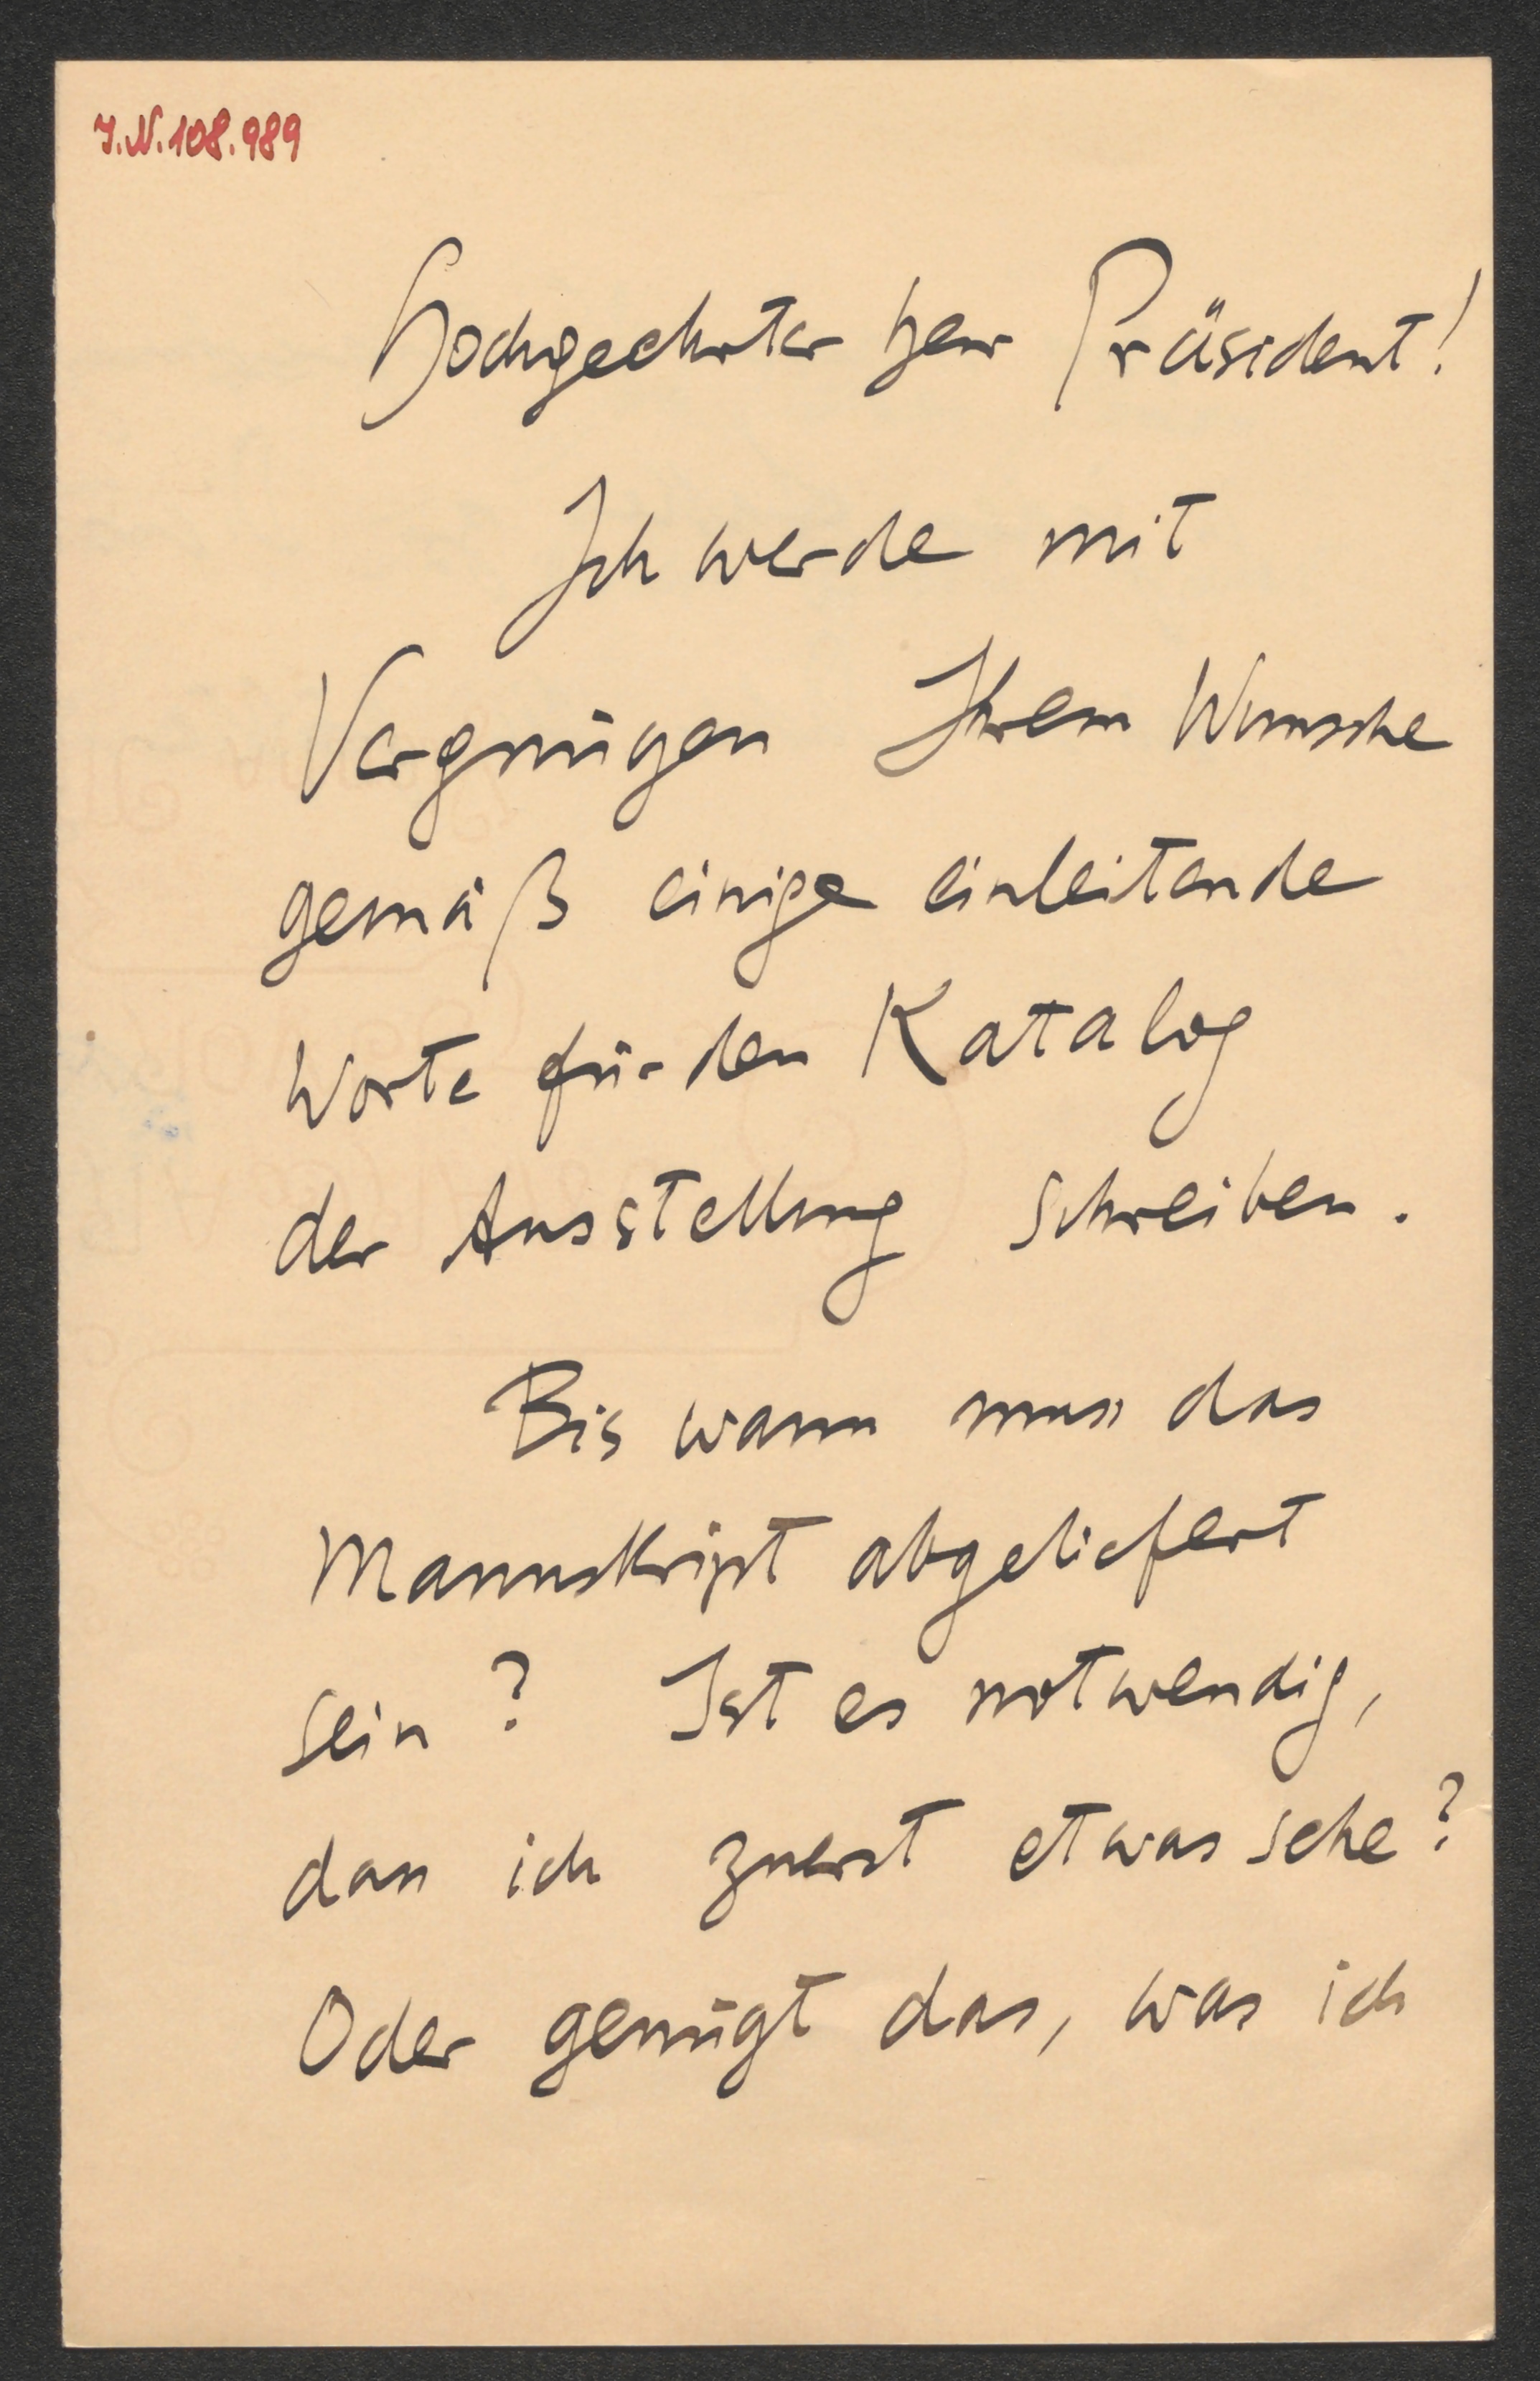 J.N. 108.989
Hochgeehrter Herr Präsident!
Ich werde mit
Vergnügen Ihrem Wunsche
gemäß einige einleitende
Worte für den Katalog
der Ausstellung schreiben.
Bis wann muss das
Manuskript abgeliefert
sein? Ist es notwendig,
dass ich zuerst etwas sehe?
Oder genügt das, was ich